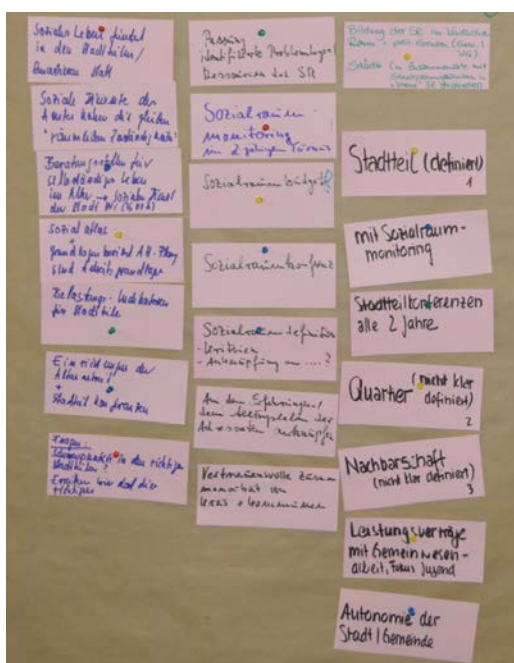 Soziales Leben findet
in den Stadtteilen/
Quartieren statt
Soziale Dienste des
Amtes haben die gleichen
"räumlichen Zuständigkeit"
Beratungsstellen für
selbständiges Leben
im Alter → Sozialer Dienst
der Stadt
Sozialatlas
sind Arbeitsgrundlage
Belastungs-Indikatoren
für Stadtteile
Einrichtungen der
+
Stadtteilkonferenzen
Fragen:
in den richtigen
Stadtteilen?
Erreichen wir dort die
richtigen
Passung
identifizierte Problemlagen/
Ressourcen des SR
Sozialraum-
monitoring
im 2 jährigen Turnus
Sozialraumbudget?
Sozialraumkonferenz
Sozialraumdefinition
- Kriterien
- Anknüpfung an ....?
An den Erfahrungen/
dem Alltagsleben der
Adressaten anknüpfen
Vertrauensvolle Zusam
menarbeit von
Kreis + Kommunen
Bildung der SR im ländlichen
Raum = polit. Grenzen (Gem. /
VG)
Städte (in Zusammenarbeit mit
Stadtteil (definiert)
1
mit Sozialraum-
monitoring
Stadtteilkonferenzen
alle 2 Jahre
Quartier (nicht klar
definiert)
2
Nachbarschaft
(nicht klar definiert)
3
Leistungsverträge
mit Gemeinwesen-
arbeit, Fokus Jugend
Autonomie der
Stadt / Gemeinde